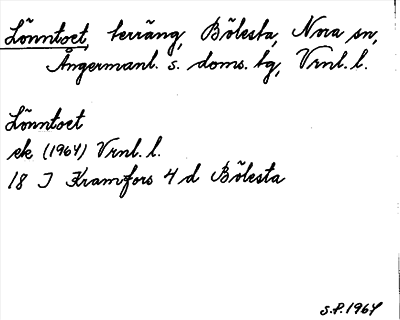 Lönntoet, terräng, Bölesta, Nora sn,
Ångermanl. s. doms. lg, Vrnl. l.
Lönntoet
ek (1964) Vrnl. l.
18 I Kramfors 4 d Bölesta
S.P. 1964